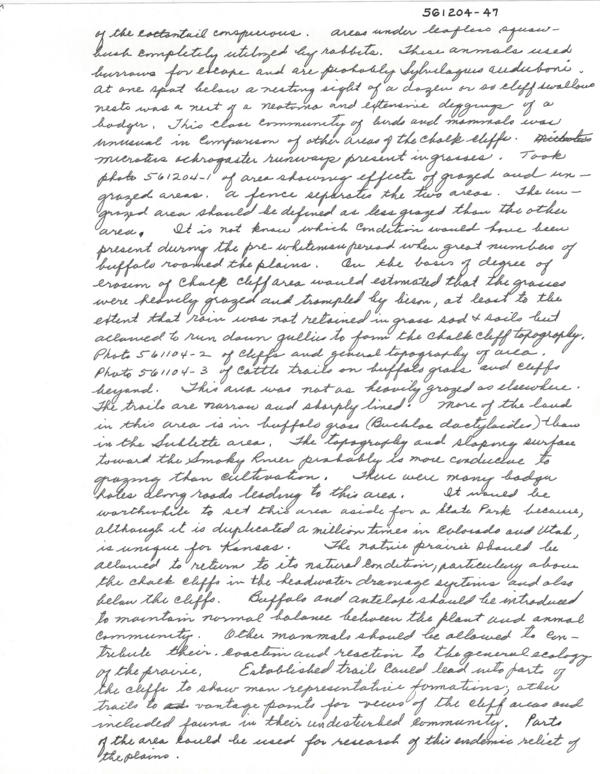 561204-47
of the cottontail conspicuous. areas under leafless squaw-
bush completely utilized by rabbits. These animals used
burrows for escape and are probably Sylvilagus auduboni.
At one spot below a nesting sight of a dozen or so cliff swallow
nests was a nest of a neotoma and extensive diggings of a
badger. This close community of birds and mammals was
unusual in comparison of other areas of the chalk cliffs.
microtus ochrogaster runways present in grasses. Took
photo 561204-1 of area showing effects of grazed and un-
grazed areas. a fence separates the two areas. The un-
grazed area should be defined as less grazed than the other
area. It is not know which condition would have been
present during the pre-whiteman period when great numbers of
buffalo roamed the plains. On the basis of degree of
erosion of chalk cliff area would estimated that the grasses
were heavily grazed and trampled by bison, at least to the
extent that rain was not retained in grass sod & soils but
allowed to run down gullies to form the chalk cliff topography.
Photo 561104-2 of cliffs and general topography of area.
Photo 561104-3 of cattle trails on buffalo grass and cliffs
beyond. This area was not as heavily grazed as elsewhere.
The trails are narrow and sharply lined. More of the land
in this area is in buffalo grass (Buchloe dactyloides) than
in the Sublette area. The topography and sloping surface
toward the Smoky River probably is more conducive to
grazing than cultivation. There were many badger
holes along roads leading to this area. It would be
worthwhile to set this area aside for a State Park because,
although it is duplicated a million times in Colorado and Utah,
is unique for Kansas. The native prairie should be
allowed to return to its natural condition, particulary above
the chalk cliffs in the headwater drainage systems and also
below the cliffs. Buffalo and antelope should be introduced
to maintain normal balance between the plant and animal
community. Other mammals should be allowed to con-
tribute their coaction and reaction to the general ecology
of the prairie. Established trail could lead into parts of
the cliffs to show man representative formations, other
trails to vantage points for views of the cliff areas and
included fauna in their undisturbed community. Parts
of the area could be used for research of this endemic relict of
the plains.